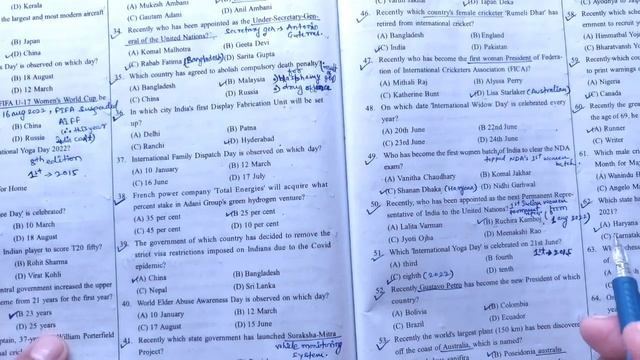 (D) Kerala
the largest and most modern aircraft
(B) Japan
(D) China
s Day' is observed on which day?
(B) 18 August
(D) 12 March
FIFA U-17 Women's World Cup be
16 aug 2022, FIFA suspended
AIFF
(B) China
(D) Russia
ational Yoga Day 2022?
8th edition
1st → 2015
for Home
ee Day' is celebrated?
(B) 10 March
(D) 18 August
Indian player to score T20 fifty?
(B) Rohit Sharma
(D) Virat Kohli
central government increased the upper
eme from 21 years for the first year?
(B) 23 years
(D) 25 years
ptain, 37-year William Porterfield
(A) Mukesh Ambani
(C) Gautam Adani
(D) Anil Ambani
34. Recently who has been appointed as the Under-Secretary-Gen-
eral of the United Nations?
Secretary gen → Antonio
Guterres
(A) Komal Malhotra
(B) Geeta Devi
(C) Rabab Fatima (Bangladesh)
(D) Sarita Gupta
35. Which country has agreed to abolish compulsory death penalty?
(A) Bangladesh
(B) Malaysia
(C) China
(D) Russia
36. In which city India's first Display Fabrication Unit will be set
up?
(A) Delhi
(B) Patna
(C) Ranchi
(D) Hyderabad
37. International Family Dispatch Day is observed on which day?
(A) 10 January
(B) 12 March
(C) 16 June
(D) 17 July
38. French power company 'Total Energies' will acquire what
percent stake in Adani Group's green hydrogen venture?
(A) 35 per cent
(B) 25 per cent
(C) 45 per cent
(D) 10 per cent
39. The government of which country has decided to remove the
strict visa restrictions imposed on Indians due to the Covid
epidemic?
(A) China
(B) Bangladesh
(C) Nepal
(D) Sri Lanka
40. World Elder Abuse Awareness Day is observed on which day?
(A) 10 January
(B) 12 March
(C) 17 August
(D) 15 June
41. Recently which state government has launched Suraksha-Mitra
Project?
vehicle monitoring
system
(D) Tapan Deka
46. Recently which country's female cricketer 'Rumeli Dhar' has
retired from international cricket?
(A) Bangladesh
(B) England
(C) India
(D) Pakistan
47. Recently who has become the first woman President of Federa-
tion of International Cricketers Association (FICA)?
(A) Mithali Raj
(B) Alyssa Perry
(C) Katherine Bunt
(D) Lisa Starlaker (Australian)
48. On which date 'International Widow Day' is celebrated every
year?
(A) 20th June
(B) 22nd June
(C) 23rd June
(D) 24th June
49. Who has become the first women batch of India to clear the NDA
exam?
topped NDA's 1st women
batch
(A) Vanitha Chaudhary
(B) Komal Jakhar
(C) Shanan Dhaka (Haryana)
(D) Nidhi Garhwal
50. Recently, who has been appointed as the next Permanent Repre-
sentative of India to the United Nations?
(A) Lalita Varman
(B) Ruchira Kamboj
(C) Jyoti Ojha
(D) Meenakahi Rao
51. Which 'International Yoga Day' is celebrated on 21st June?
1st → 2015
(A) third
(B) fourth
(C) eighth (2022)
(D) tenth
52. Recently Gustavo Petro has become the new President of which
country?
(A) Bolivia
(B) Colombia
(C) Brazil
(D) Ecuador
53. Recently the world's largest plant (150 km) has been discovered
off the coast of Australia, which is named?
(B) Posidonia australis
58. Recently which
59. Recently
(A) Norway
(C) Canada
60. Recently
the age of 69,
(A) Runner
(C) Writer
61. Which male cric
Month for M
(A) Wanindu H
(C) Angelo M
62. Which state h
2021?
(A) Haryana
63.
64.